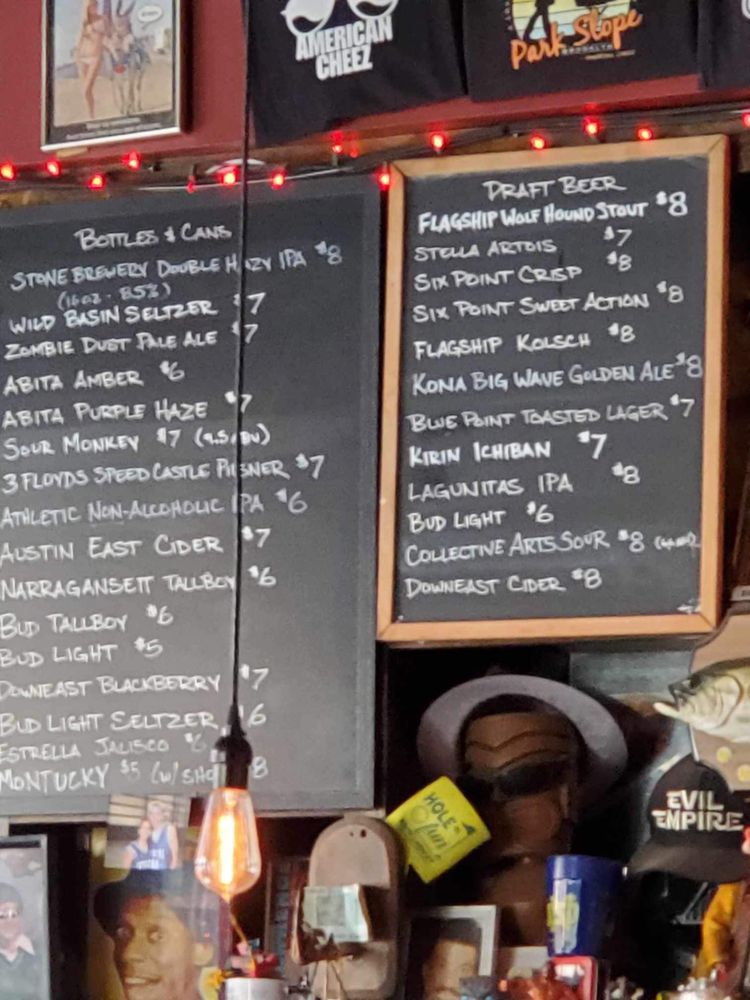 AMERICAN
CHEEZ
Park Slope
BROOKLYN
BOTTLES & CANS
STONE BREWERY DOUBLE HAZY IPA $8
(16oz - 8.5%)
WILD BASIN SELTZER $7
ZOMBIE DUST PALE ALE $7
ABITA AMBER $6
ABITA PURPLE HAZE $7
SOUR MONKEY $7
3 FLOYDS SPEED CASTLE PILSNER $7
ATHLETIC NON-ALCOHOLIC IPA $6
AUSTIN EAST CIDER $7
NARRAGANSETT TALLBOY $6
BUD TALLBOY $6
BUD LIGHT $5
DOWNEAST BLACKBERRY $7
BUD LIGHT SELTZER $6
ESTRELLA JALISCO $6
MONTUCKY $5 (w/ SHOT 8
DRAFT BEER
FLAGSHIP WOLF HOUND STOUT $8
STELLA ARTOIS $7
SIX POINT CRISP $8
SIX POINT SWEET ACTION $8
FLAGSHIP KOLSCH $8
KONA BIG WAVE GOLDEN ALE $8
BLUE POINT TOASTED LAGER $7
KIRIN ICHIBAN $7
LAGUNITAS IPA $8
BUD LIGHT $6
COLLECTIVE ARTS SOUR $8
DOWNEAST CIDER $8
HOLE
EVIL
EMPIRE